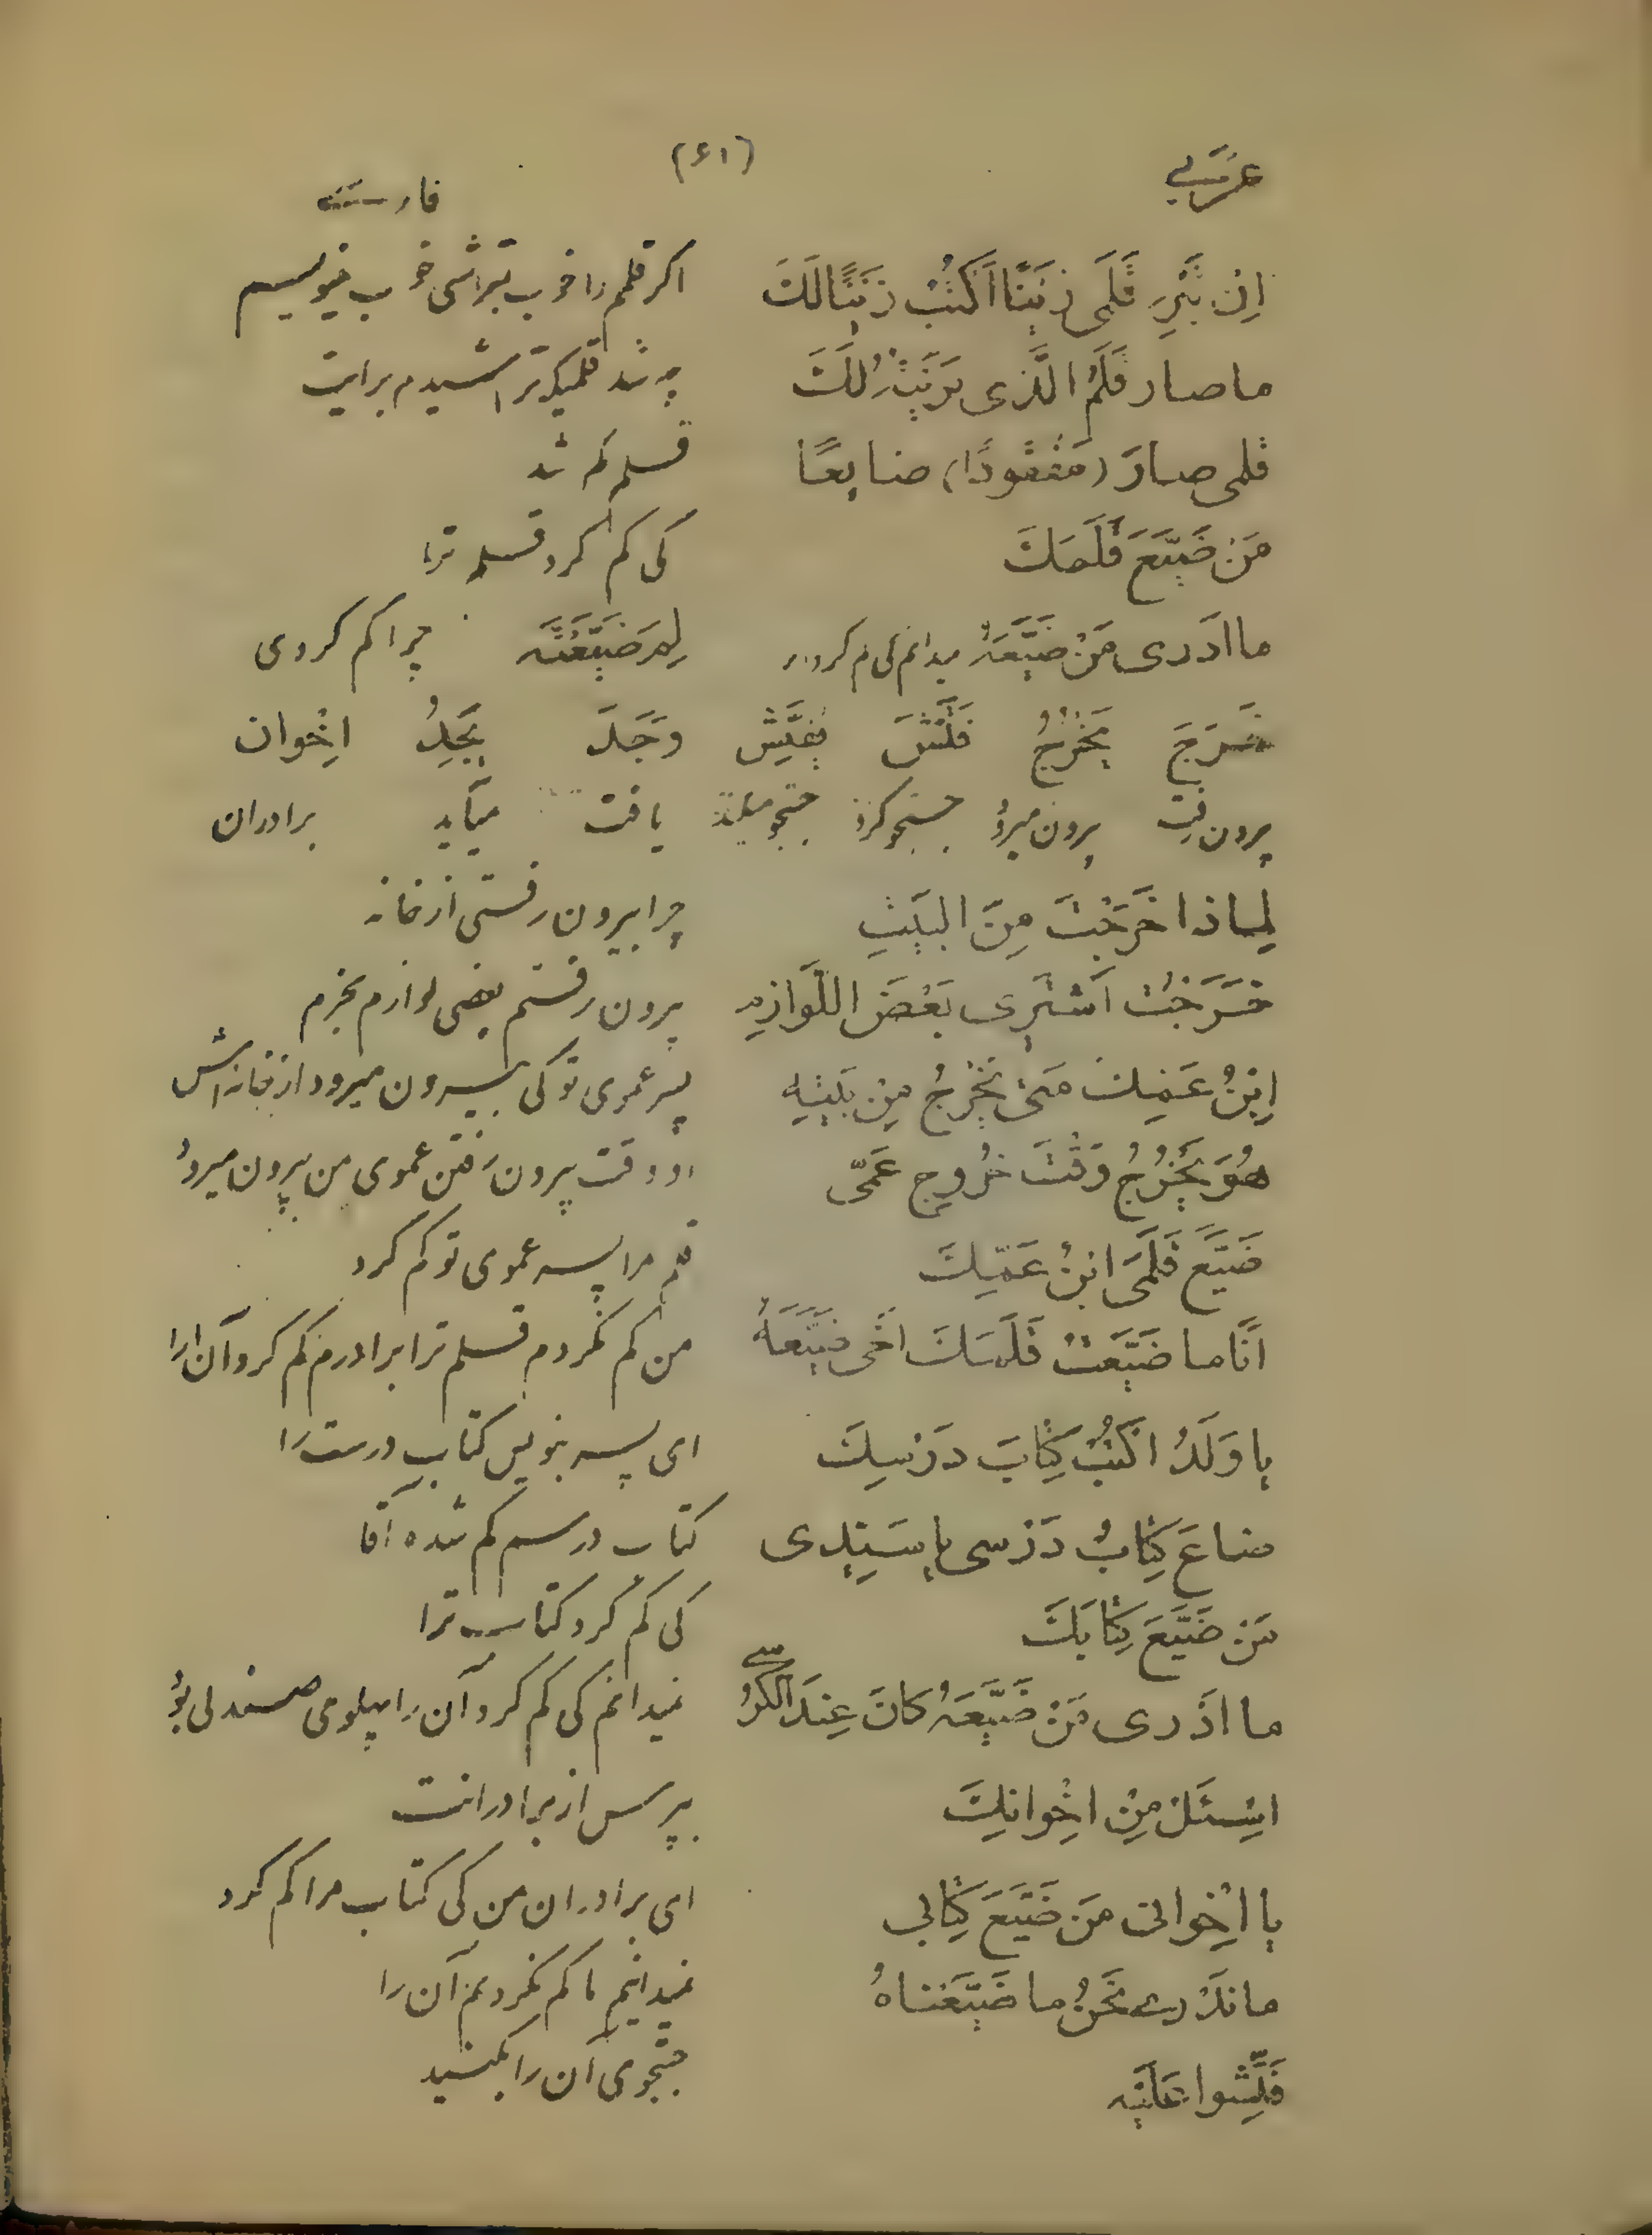 (۶۱)
عَرَبی فارسی
اِن تَبْرِ قَلَمی زَیْنًا اَکْتُبْ زَیْنًا لَکَ اگر قلمم را خوب بتراشی خوب مینویسم
ما صار قَلَمُ الَّذی بَرَیْتُ لَکَ چه شد قلمیکه تراشیدم برایت
قلمی صارَ (مَفْقودًا) ضایعًا قلمم گم شد
مَنْ ضَیَّعَ قَلَمَکَ کی گم کرد قلم ترا
ما اَدَری مَنْ ضَیَّعَهُ نمیدانم کی گم کرد لِمَ ضَیَّعْتَه چرا گم کردی
خَرَجَ یَخْرُجُ فَتَّشَ یُفَتِّش وَجَدَ یَجِدُ اِخْوان
بیرون رفت بیرون میرود جستجو کرد جستجو میکند یافت مییابد برادران
لِماذا خَرَجْتَ مِنَ البَیْتِ چرا بیرون رفتی از خانه
خَرَجْتُ اَشْتَری بَعْضَ اللَّوازِمِ بیرون رفتم بعضی لوازم بخرم
اِبْنُ عَمِّکَ مَتیٰ یَخْرُجُ مِنْ بَیْتِهِ پسر عموی تو کی بیرون میرود از خانه‌اش
هُوَ یَخْرُجُ وَقْتَ خُروجِ عَمّی او وقت بیرون رفتن عموی من بیرون میرود
ضَیَّعَ قَلَمیَ ابْنُ عَمِّکَ قلم مرا پسر عموی تو گم کرد
اَنَا ما ضَیَّعْتُ قَلَمَکَ اَخی ضَیَّعَهُ من گم نکردم قلم ترا برادرم گم کرد آن را
یا وَلَدُ اکْتُبْ کِتابَ دَرْسِکَ ای پسر بنویس کتاب درست را
ضاعَ کِتابُ دَرْسی یا سَیِّدی کتاب درسم گم شده آقا
مَنْ ضَیَّعَ کِتابَکَ کی گم کرد کتاب ترا
ما اَدْری مَنْ ضَیَّعَهُ کانَ عِنْدَ الکُرْسی نمیدانم کی گم کرد آن را پهلوی صندلی بود
اسْئَلْ مِنْ اِخْوانِکَ بپرس از برادرانت
یا اِخْوانی مَنْ ضَیَّعَ کِتابی ای برادران من کی کتاب مرا گم کرد
ما نَدْری نَحْنُ ما ضَیَّعْناهُ نمیدانیم ما گم نکردیم آن را
فَتِّشوا عَلَیْهِ جستجوی آن را بکنید